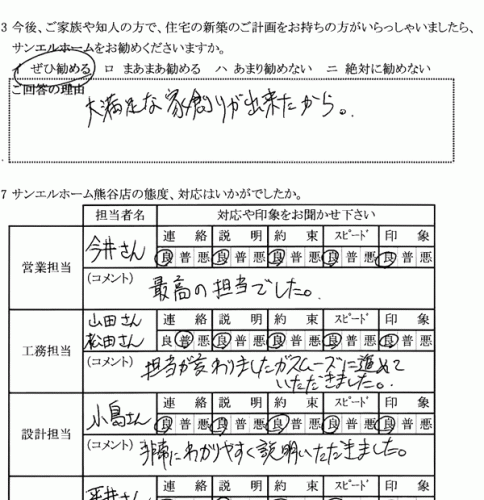 3 今後、ご家族や知人の方で、住宅の新築のご計画をお持ちの方がいらっしゃいましたら、
サンエルホームをお勧めくださいますか。
イ ぜひ勧める ロ まあまあ勧める ハ あまり勧めない ニ 絶対に勧めない
ご回答の理由
大満足な家創りが出来たから。
7 サンエルホーム熊谷店の態度、対応はいかがでしたか。
担当者名 対応や印象をお聞かせ下さい
営業担当 今井さん 連絡 説明 約束 スピード 印象
良 普 悪 良 普 悪 良 普 悪 良 普 悪 良 普 悪
(コメント) 最高の担当でした。
工務担当 山田さん 連絡 説明 約束 スピード 印象
松田さん 良 普 悪 良 普 悪 良 普 悪 良 普 悪 良 普 悪
(コメント) 担当が変わりましたがスムーズに進めて
いただきました。
設計担当 小島さん 連絡 説明 約束 スピード 印象
良 普 悪 良 普 悪 良 普 悪 良 普 悪 良 普 悪
(コメント) 非常にわかりやすく説明いただきました。
平井さん 連絡 説明 約束 スピード 印象